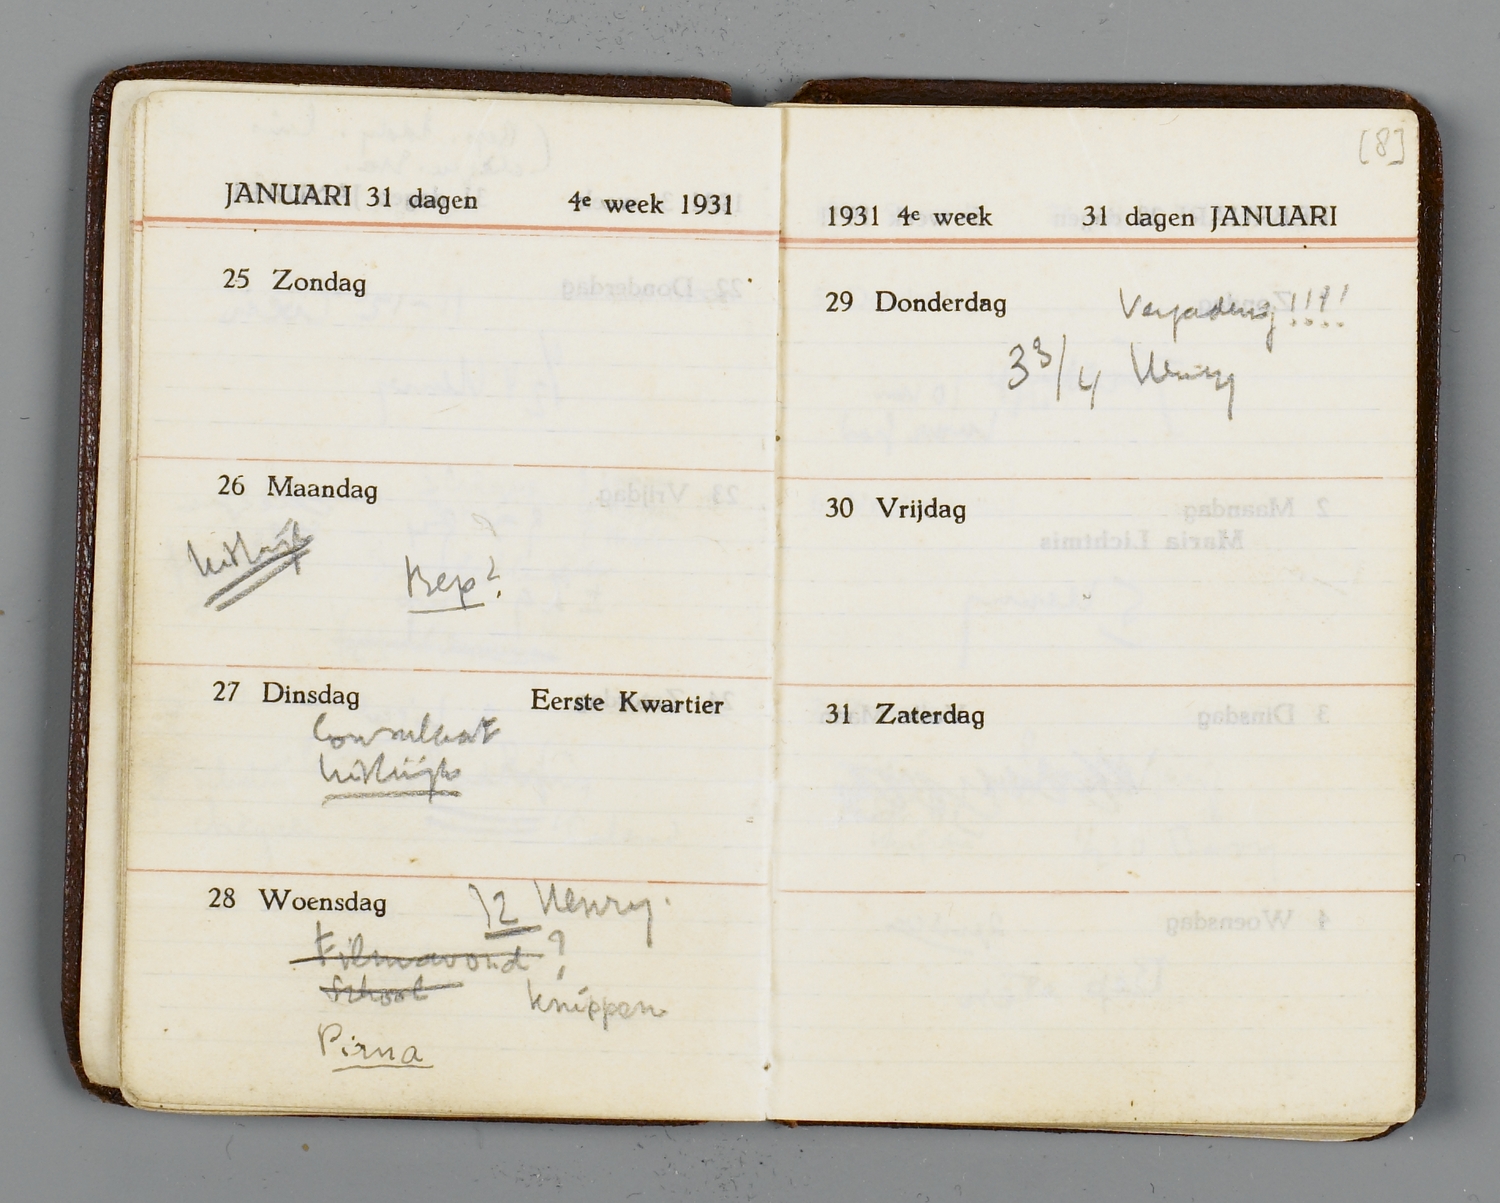 JANUARI 31 dagen 4e week 1931
25 Zondag
26 Maandag
Bep?
27 Dinsdag Eerste Kwartier
Consulaat
28 Woensdag 12 Henry.
Filmavond?
School
Knippen
Pirna
[8]
1931 4e week 31 dagen JANUARI
29 Donderdag Verjaardag!!!!
3 3/4 Henry
30 Vrijdag
31 Zaterdag